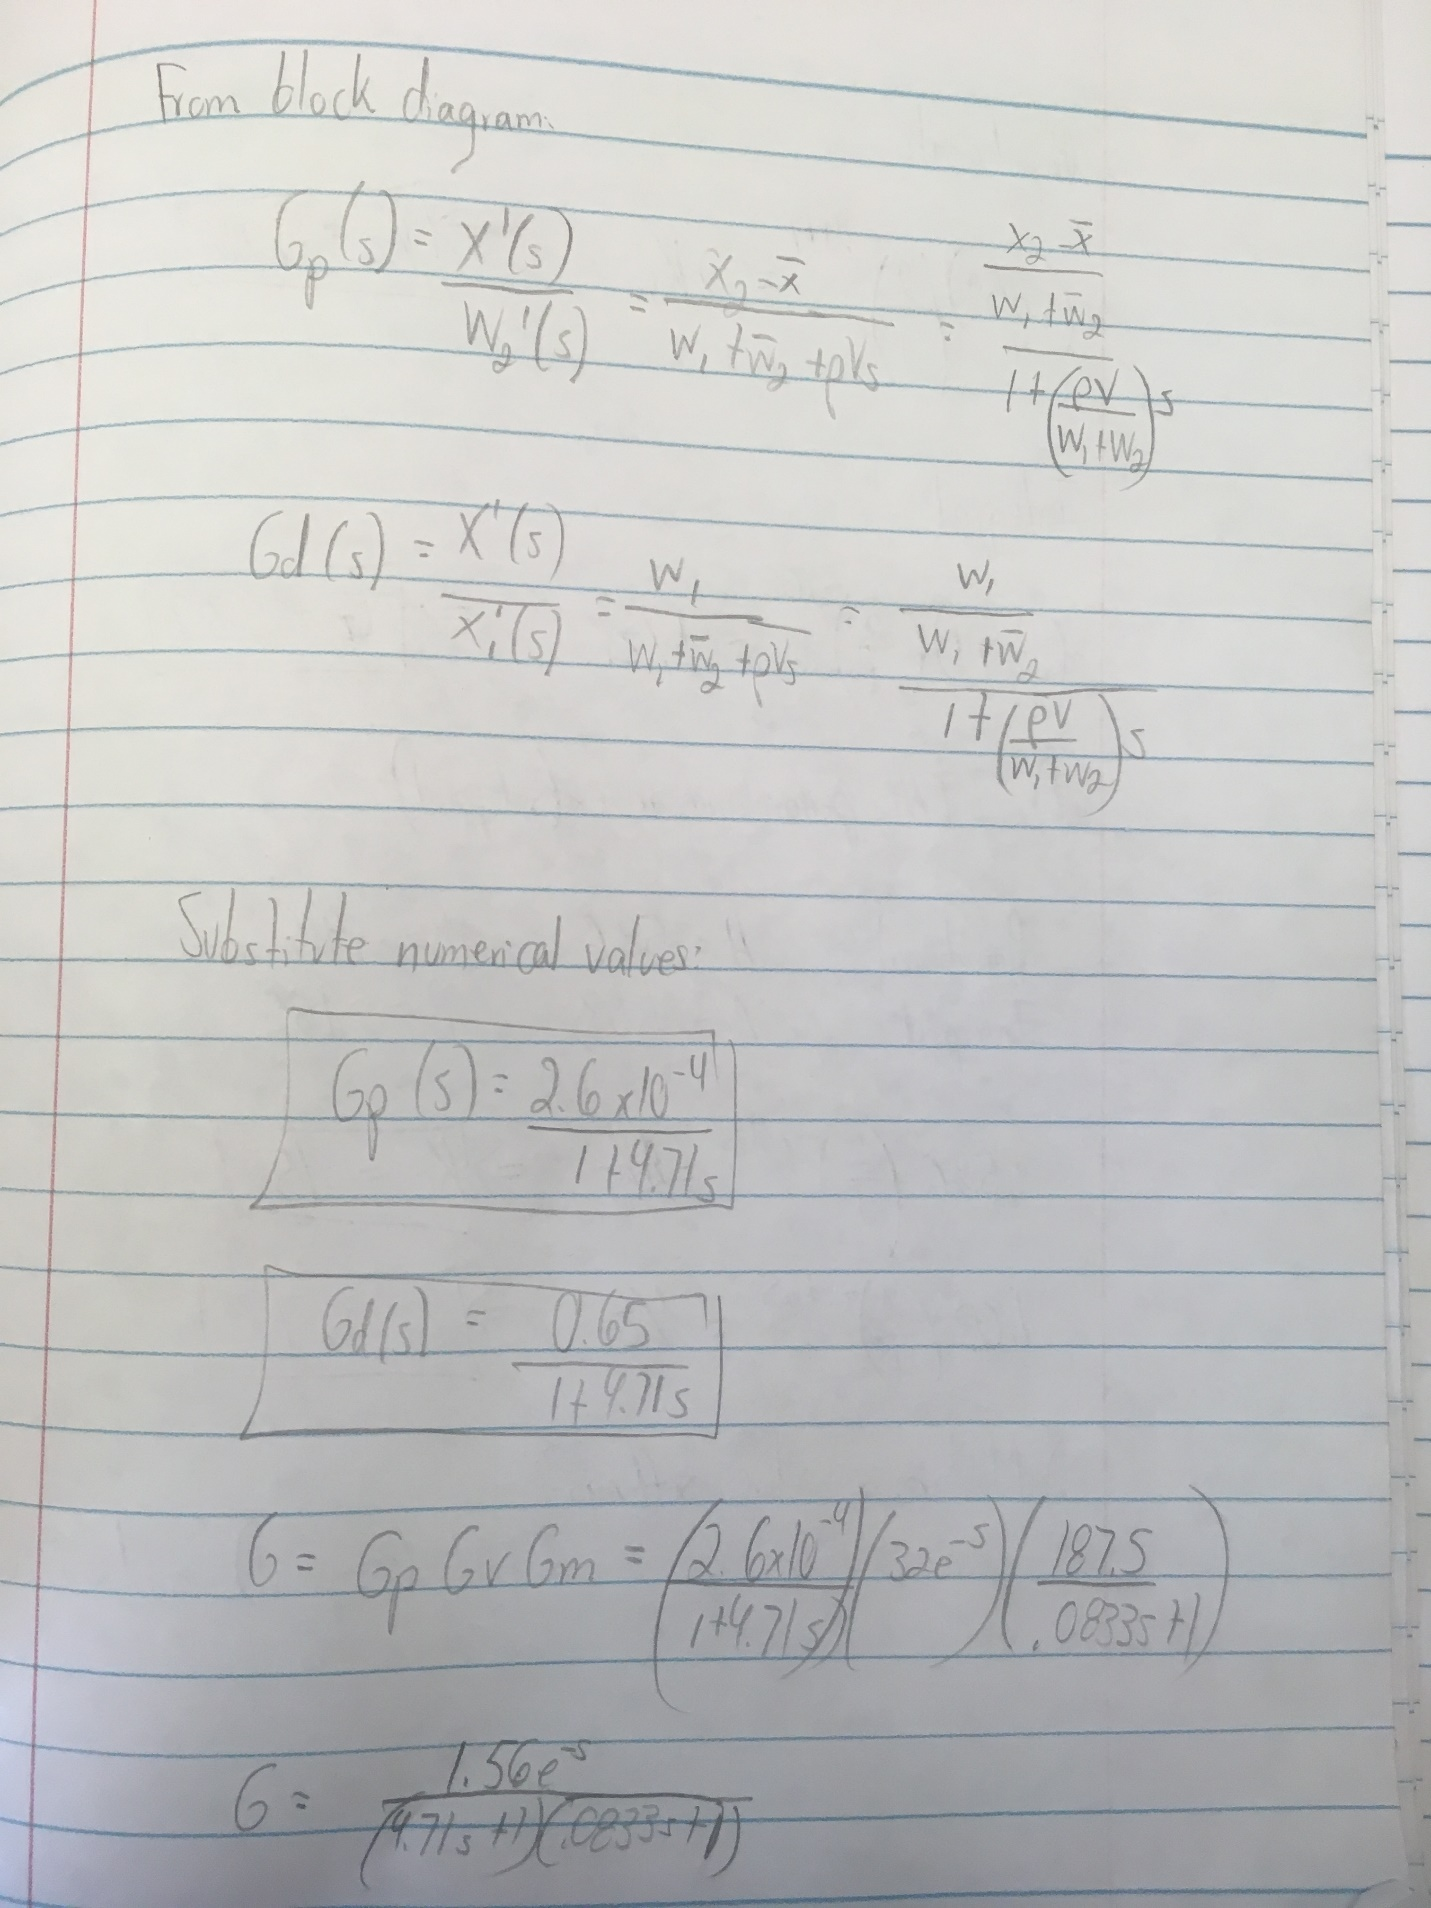 From block diagram:
Gp(s) = X'(s) / W₂'(s) = x₂ - x̄ / w₁ + w̄₂ + ρVs = (x₂ - x̄ / w₁ + w̄₂) / 1 + (ρV / w₁ + w₂)s
Gd(s) = X'(s) / x₁'(s) = w₁ / w₁ + w̄₂ + ρVs = (w₁ / w₁ + w̄₂) / 1 + (ρV / w₁ + w₂)s
Substitute numerical values:
Gp(s) = 2.6x10⁻⁴ / 1+4.71s
Gd(s) = 0.65 / 1+4.71s
G = Gp Gv Gm = (2.6x10⁻⁴ / 1+4.71s)(32e⁻ˢ)(187.5 / .0833s+1)
G = 1.56e⁻ˢ / (4.71s+1)(.0833s+1)